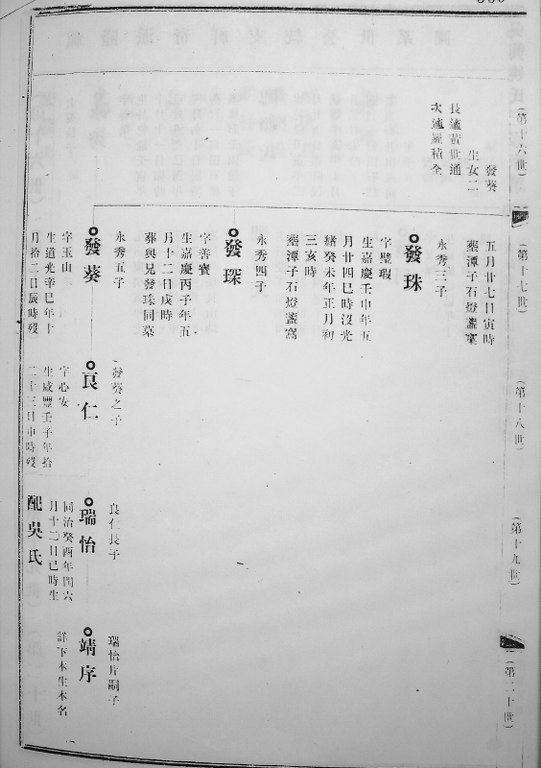 (第十六世)
發葵
生女二
長適黃世通
次適羅積全
(第十七世)
五月廿七日寅時
葬潭子石燈盞窩
永秀三子
發珠
字璧瑕
生嘉慶壬申年五
月廿四巳時沒光
緒癸未年正月初
三亥時
葬潭子石燈盞窩
永秀四子
發琛
字善寶
生嘉慶丙子年五
月十二日戌時
葬與兄發珠同墓
永秀五子
發葵
字玉山
生道光辛巳年十
月拾二日辰時歿
(第十八世)
發葵之子
良仁
字心安
生咸豐壬子年拾
二十三日申時歿
(第十九世)
良仁長子
瑞怡
同治癸酉年閏六
月十二日巳時生
配吳氏
(第二十世)
瑞怡片嗣子
靖序
詳下本生本名